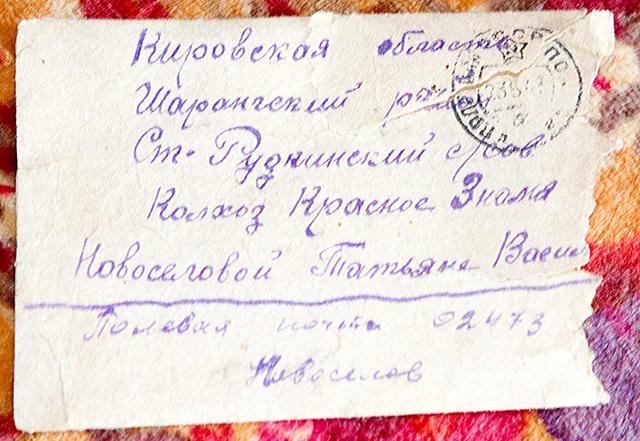 Кировская область
Шарангский район
Ст-Руднинский с/сов
Колхоз Красное Знамя
Новоселовой Татьяне Васил
Полевая почта 02473
Новоселов